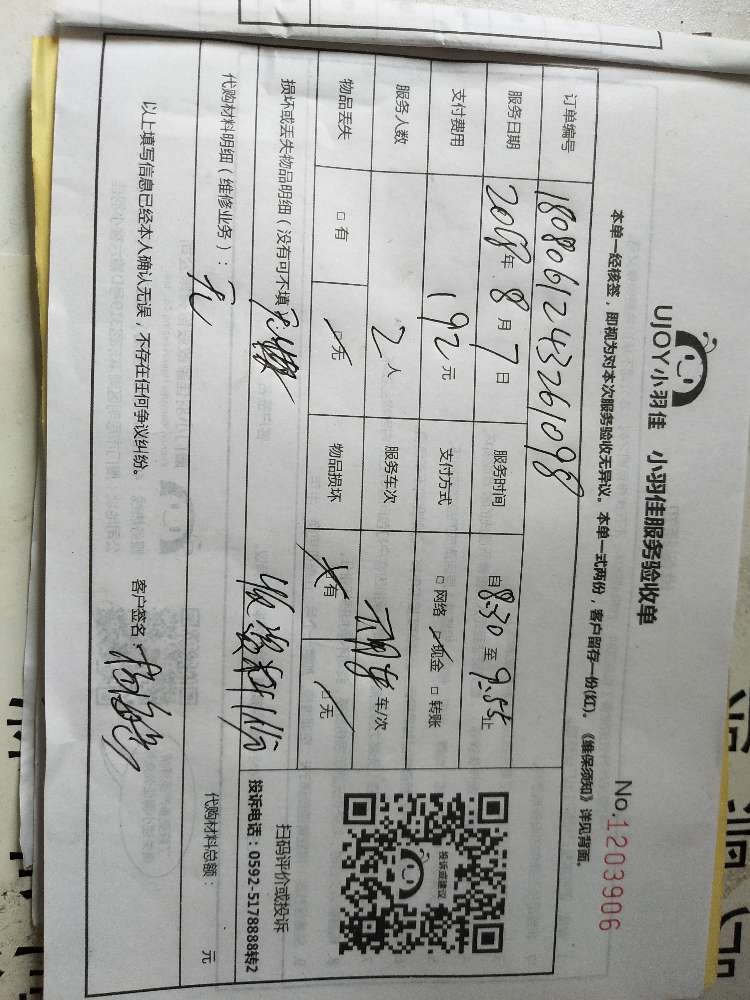 UJOY小羽佳 小羽佳服务验收单
No.1203906
本单一经核签，即视为对本次服务验收无异议。本单一式两份，客户留存一份(红)。《维保须知》详见背面。
订单编号 1808061243261098
服务日期 2018年8月7日 服务时间 自8:30至9:55止
支付费用 192元 支付方式 □网络 □现金 □转账
服务人数 2人 服务车次 车/次
物品丢失 □有 □无 物品损坏 □有 □无
损坏或丢失物品明细（没有可不填
代购材料明细（维修业务）：无
代购材料总额： 元
以上填写信息已经本人确认无误，不存在任何争议纠纷。
客户签名：
投诉或建议
扫码评价或投诉
投诉电话：0592-5178888转2